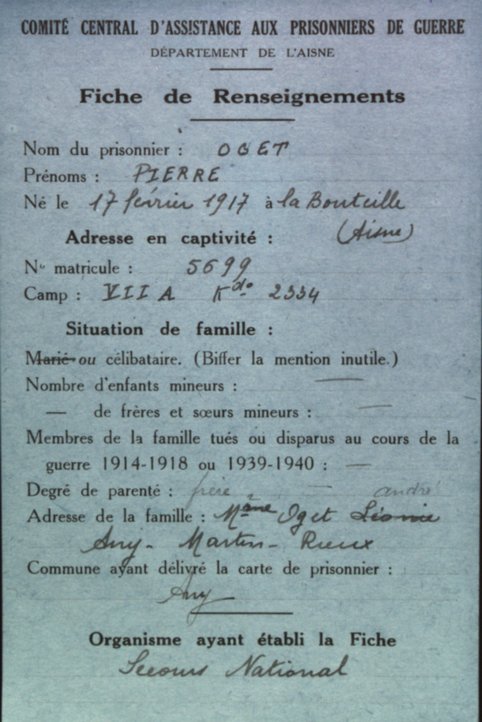 COMITÉ CENTRAL D'ASSISTANCE AUX PRISONNIERS DE GUERRE
DÉPARTEMENT DE L'AISNE
Fiche de Renseignements
Nom du prisonnier : OGET
Prénoms : PIERRE
Né le 17 février 1917 à la Bouteille
(Aisne)
Adresse en captivité :
No matricule : 5699
Camp : VII A Kdo 2334
Situation de famille :
Marié ou célibataire. (Biffer la mention inutile.)
Nombre d'enfants mineurs : —
— de frères et sœurs mineurs : —
Membres de la famille tués ou disparus au cours de la
guerre 1914-1918 ou 1939-1940 : —
Degré de parenté : frère — andré
Adresse de la famille : Mme Oget Léonie
Any - Martin - Rieux
Commune ayant délivré la carte de prisonnier :
Any
Organisme ayant établi la Fiche
Secours National